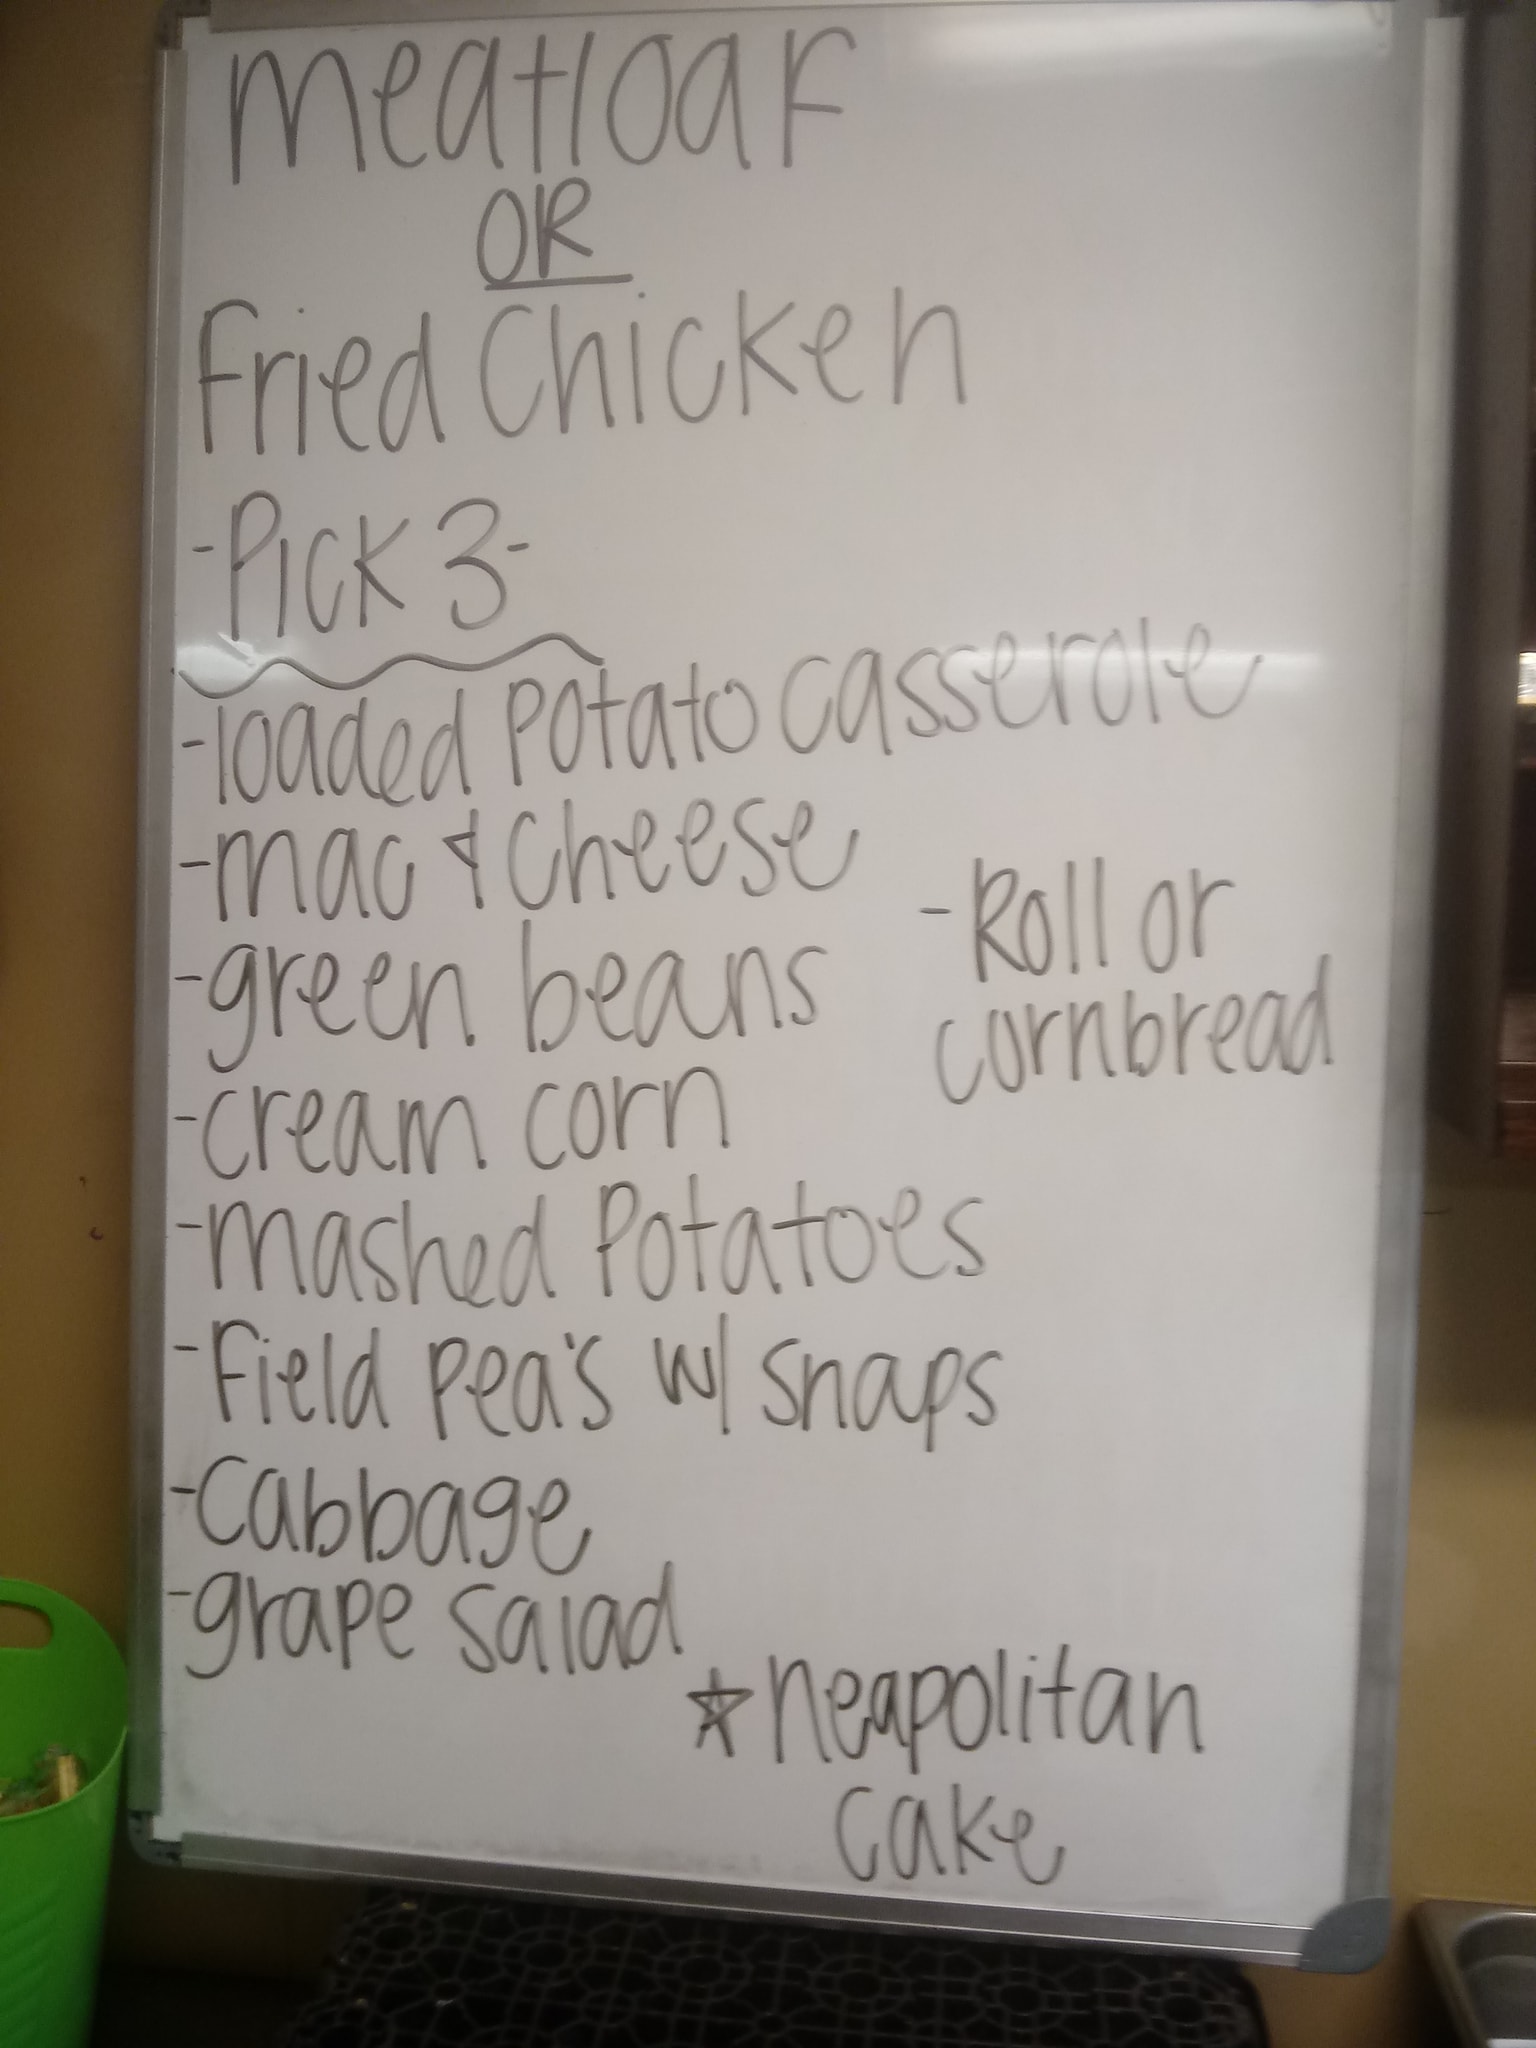 meatloaf
OR
Fried Chicken
-Pick 3-
-loaded potato casserole
-mac & cheese
-green beans
-cream corn
-mashed potatoes
-Field pea's w/ snaps
-Cabbage
-grape salad
-Roll or
cornbread
☆ neapolitan
cake